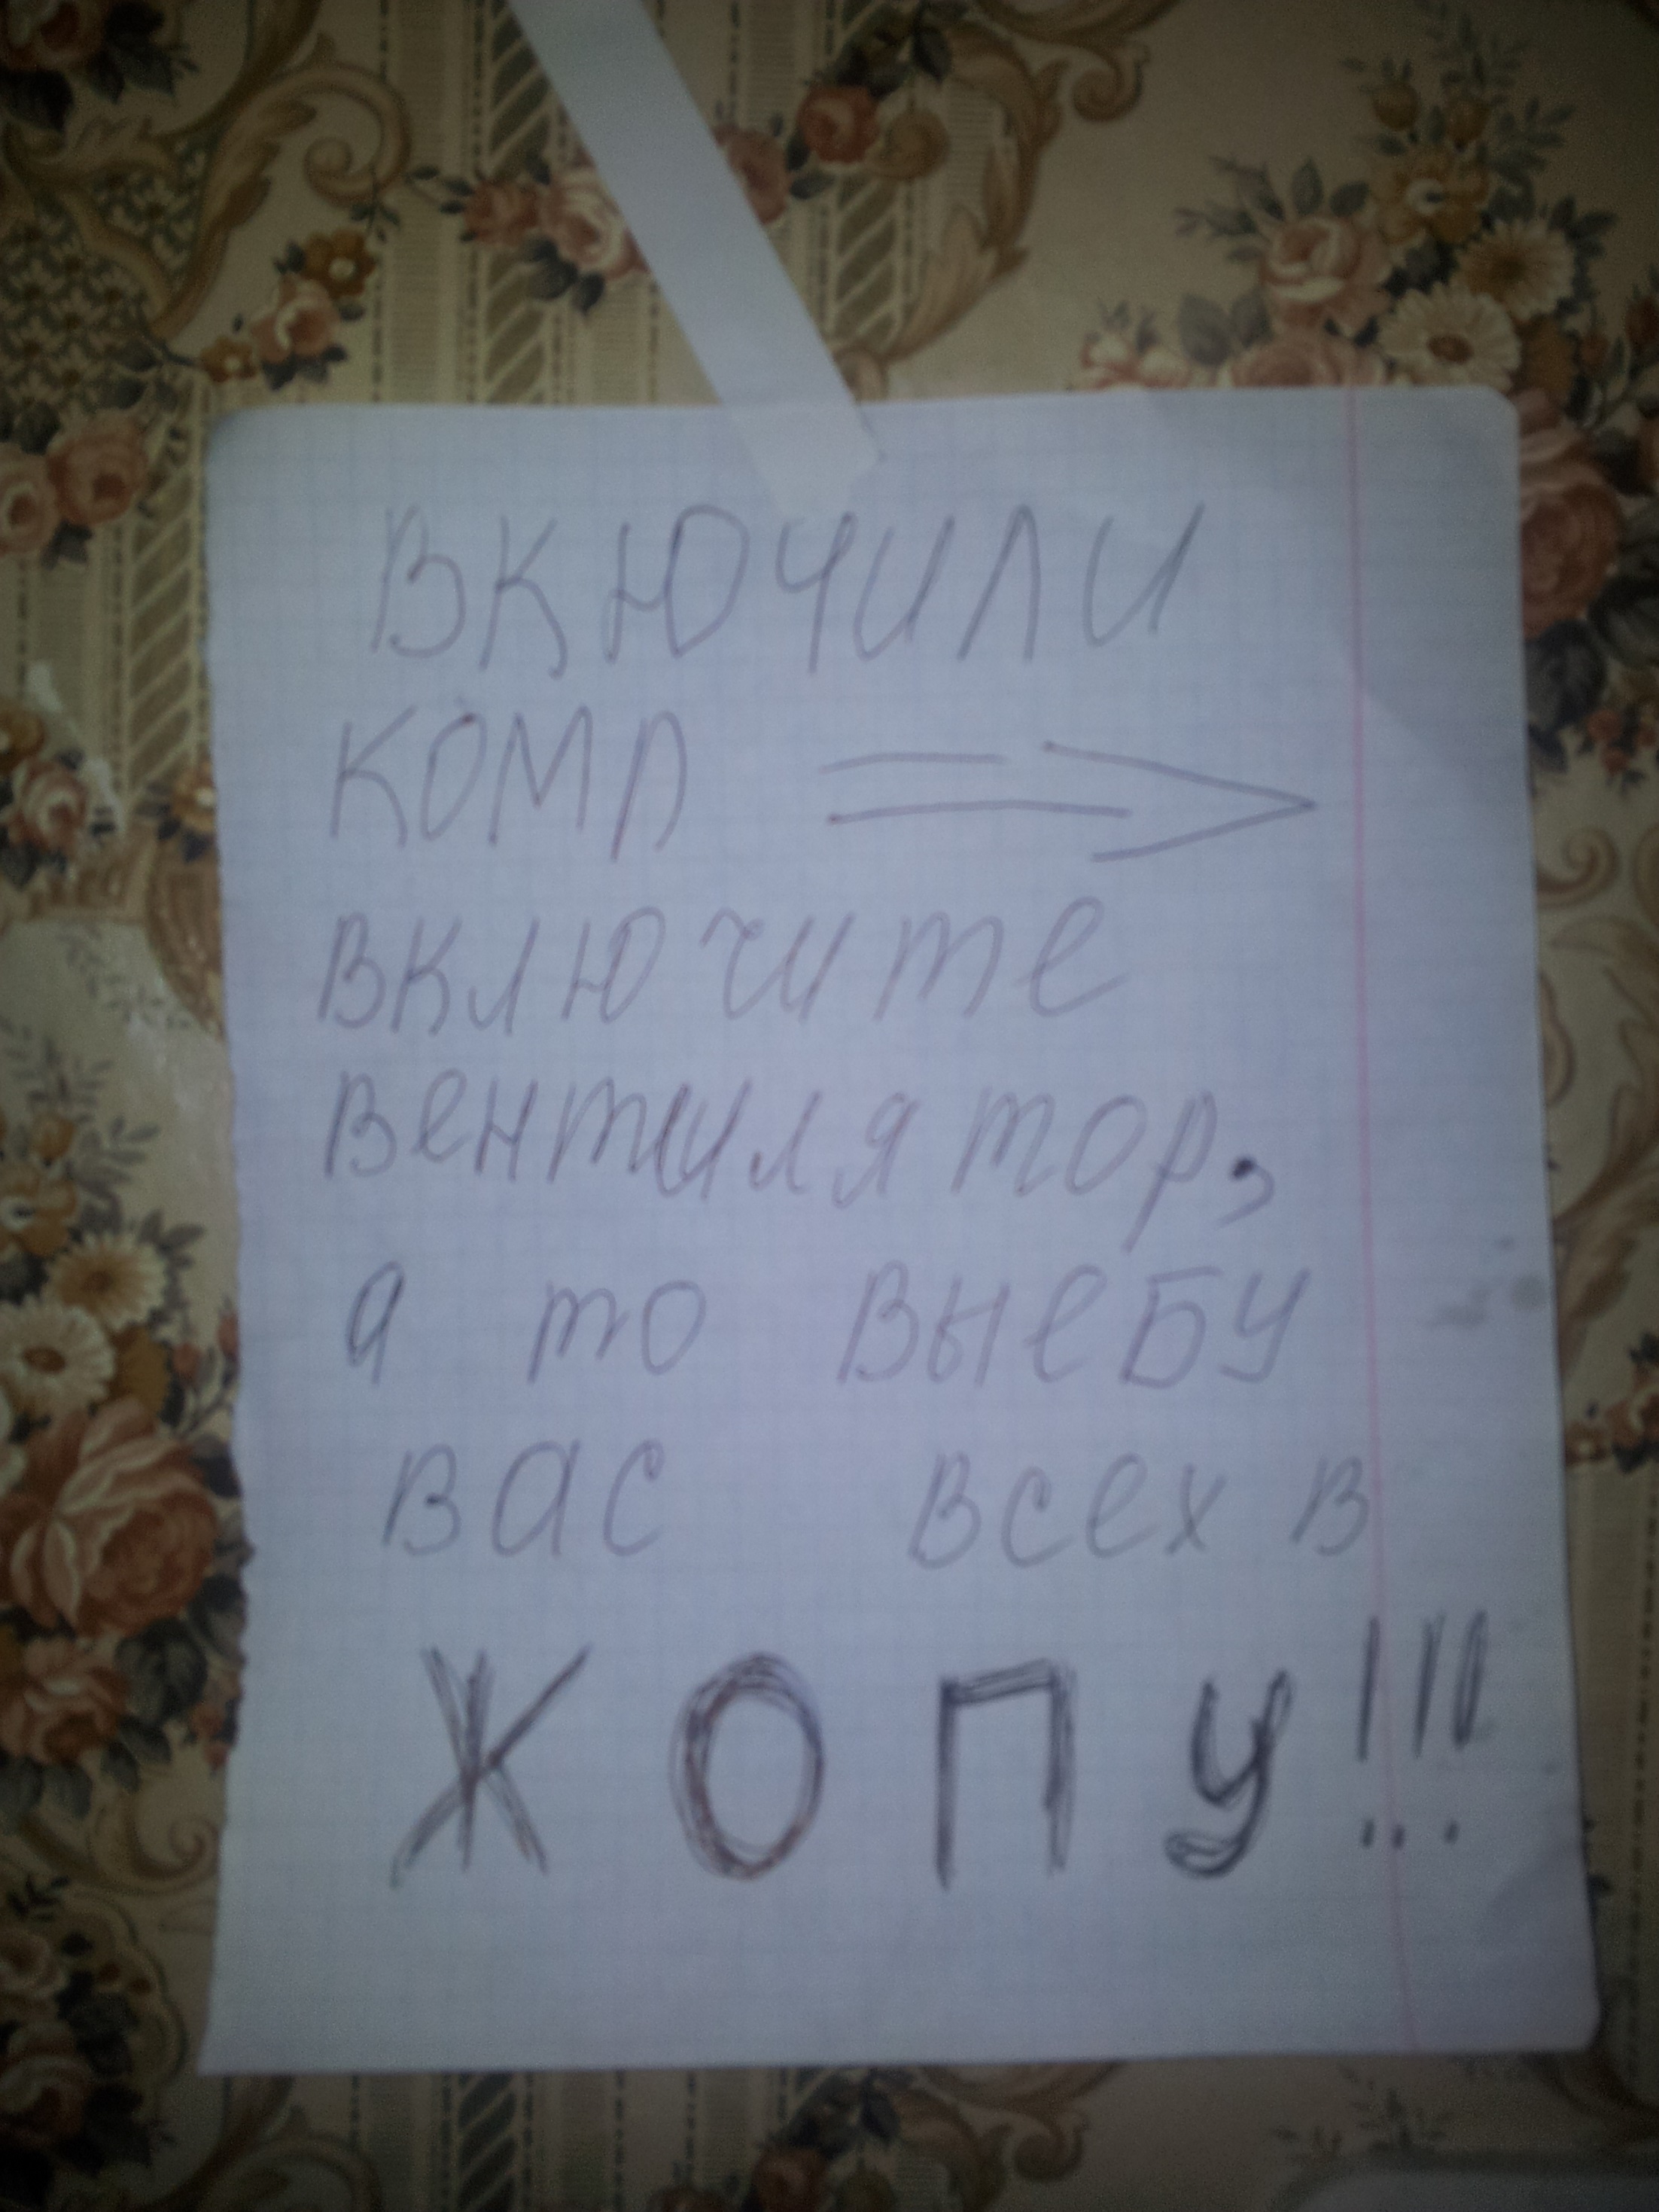 ВКЮЧИЛИ
КОМП =>
ВКЛЮЧИТЕ
ВЕНТИЛЯТОР,
А ТО ВЫЕБУ
ВАС ВСЕХ В
ЖОПУ!!!